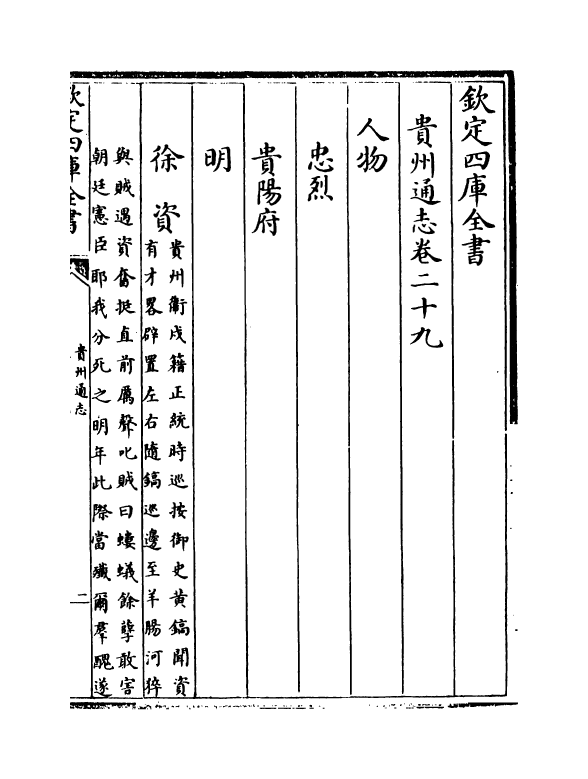 欽定四庫全書
貴州通志卷二十九
人物
忠烈
貴陽府
明
徐資
貴州衞戍籍正統時巡按御史黄鎬聞資
有才畧辟置左右隨鎬巡邊至羊腸河猝
與賊遇資奮挺直前厲聲叱賊曰螻蟻餘孽敢害
朝廷憲臣耶我分死之明年此際當殲爾羣醜遂
欽定四庫全書
貴州通志